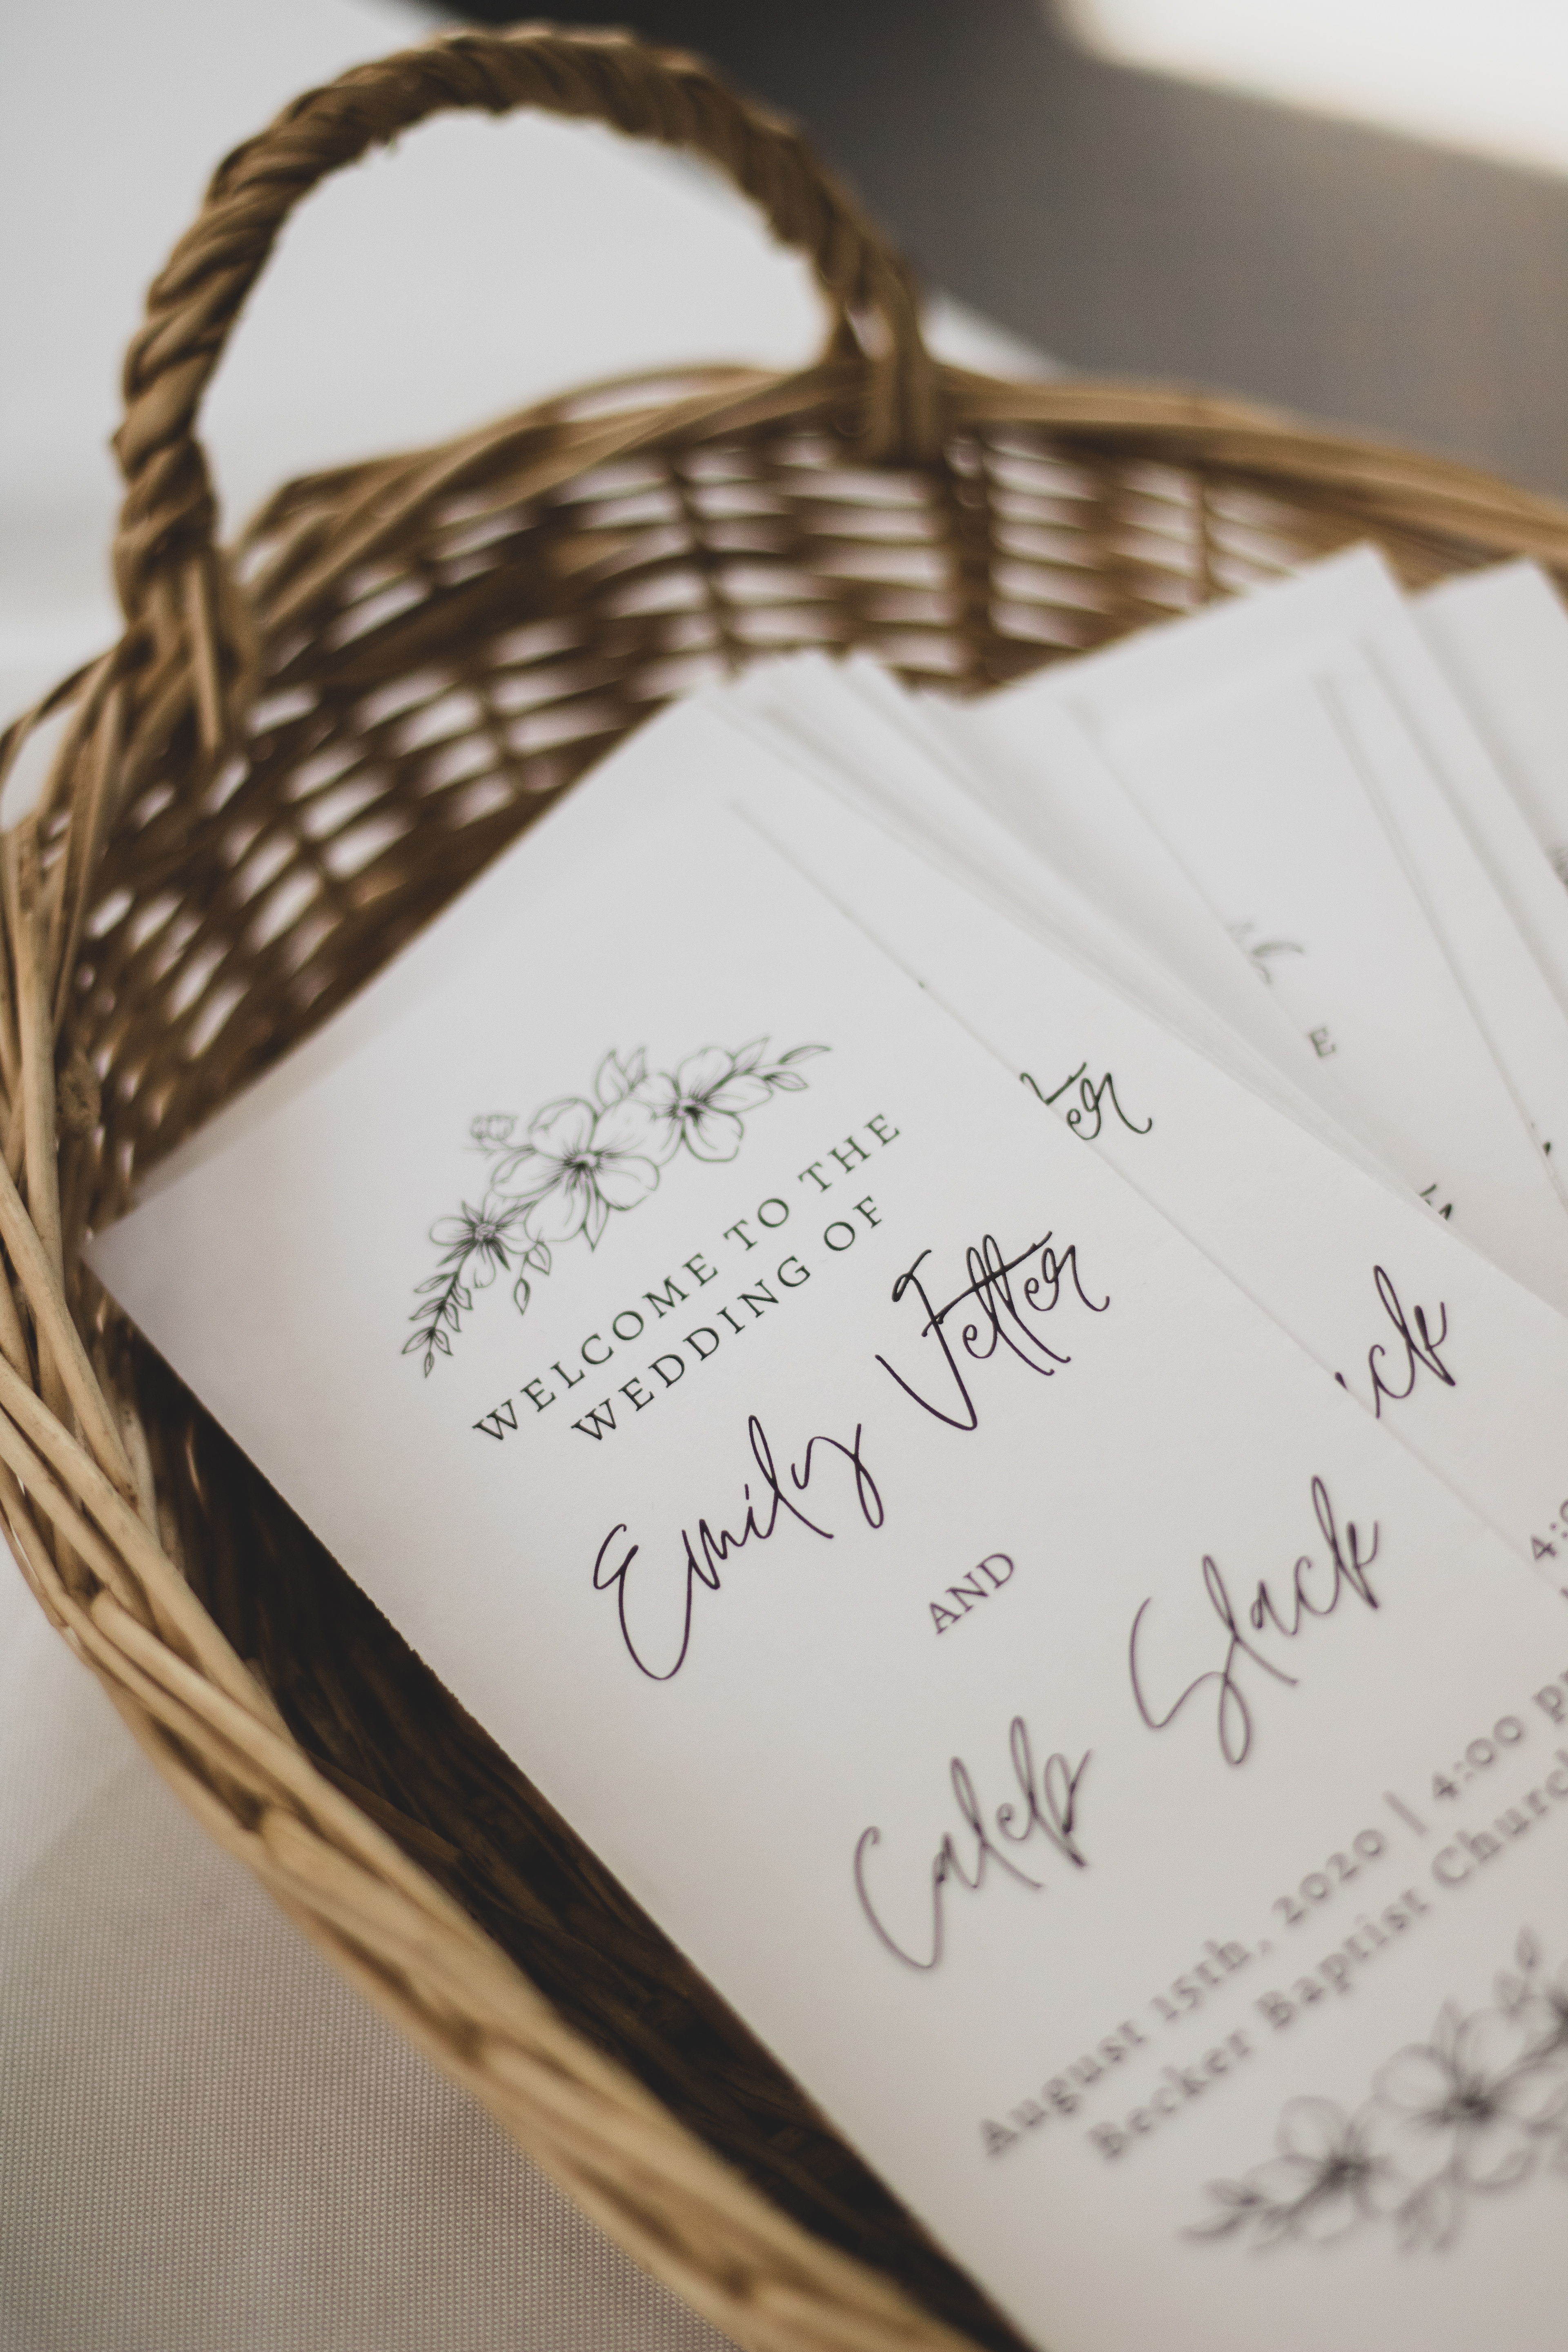 WELCOME TO THE
WEDDING OF
Emily Vetter
AND
Caleb Slack
August 15th, 2020 | 4:00 p
Becker Baptist Church
ter
ick
E
4: